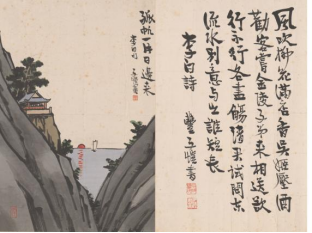 風吹柳花滿店香吳姬壓酒
勸客嘗金陵子弟來相送欲
行不行各盡觴請君試問東
流水別意與之誰短長
李白詩 豐子愷書
孤帆一片日邊來
子愷畫